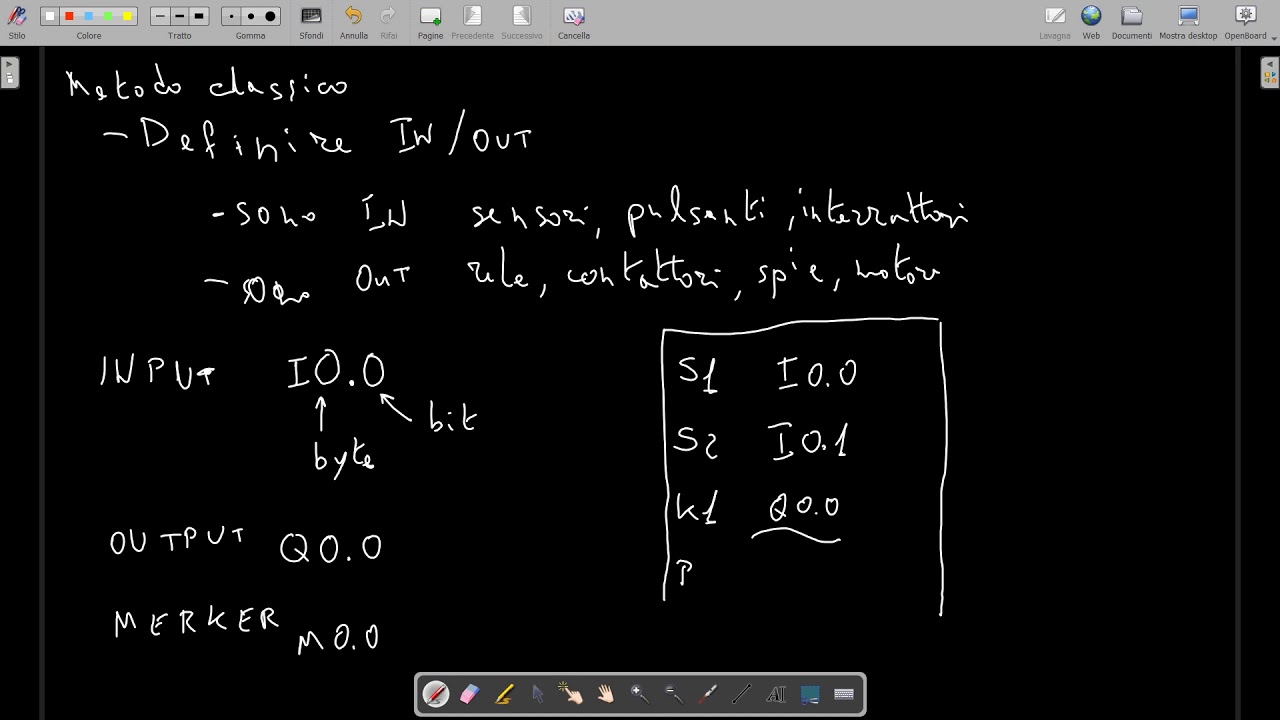 Stilo
Colore
Tratto
Gomma
Sfondi
Annulla
Rifai
Pagine
Precedente
Successivo
Cancella
Lavagna
Web
Documenti
Mostra desktop
OpenBoard
Metodo classico
- Definire IN/OUT
- sono IN sensori, pulsanti, interruttori
- sono OUT rele, contattori, spie, motori
INPUT I0.0
bit
byte
OUTPUT Q0.0
MERKER M0.0
S1 I0.0
S2 I0.1
K1 Q0.0
P
AI